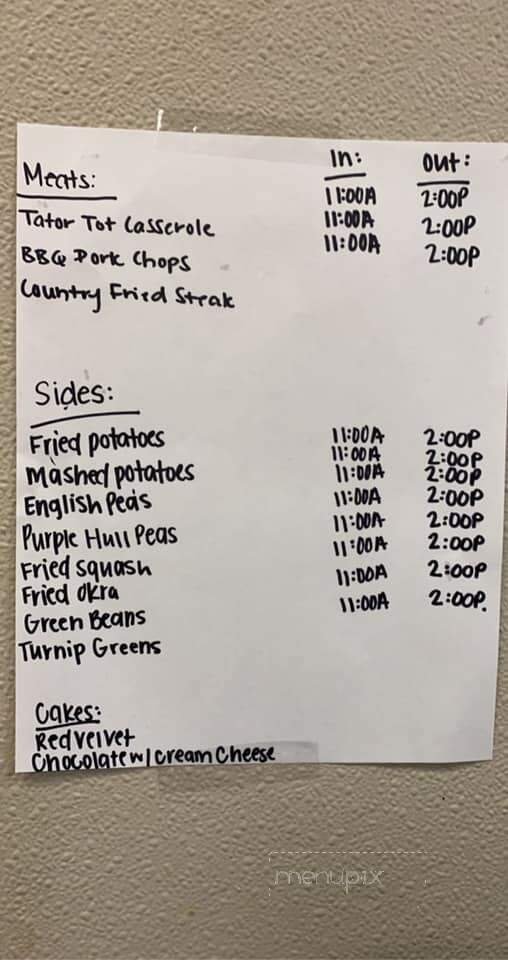 Meats: In: Out:
Tator Tot Casserole 11:00A 2:00P
BBQ Pork Chops 11:00A 2:00P
Country Fried Steak 11:00A 2:00P
Sides:
Fried potatoes 11:00A 2:00P
Mashed potatoes 11:00A 2:00P
English Peas 11:00A 2:00P
Purple Hull Peas 11:00A 2:00P
Fried squash 11:00A 2:00P
Fried Okra 11:00A 2:00P
Green Beans 11:00A 2:00P
Turnip Greens 11:00A 2:00P.
Cakes:
Red velvet
Chocolate w/ cream Cheese
menupix